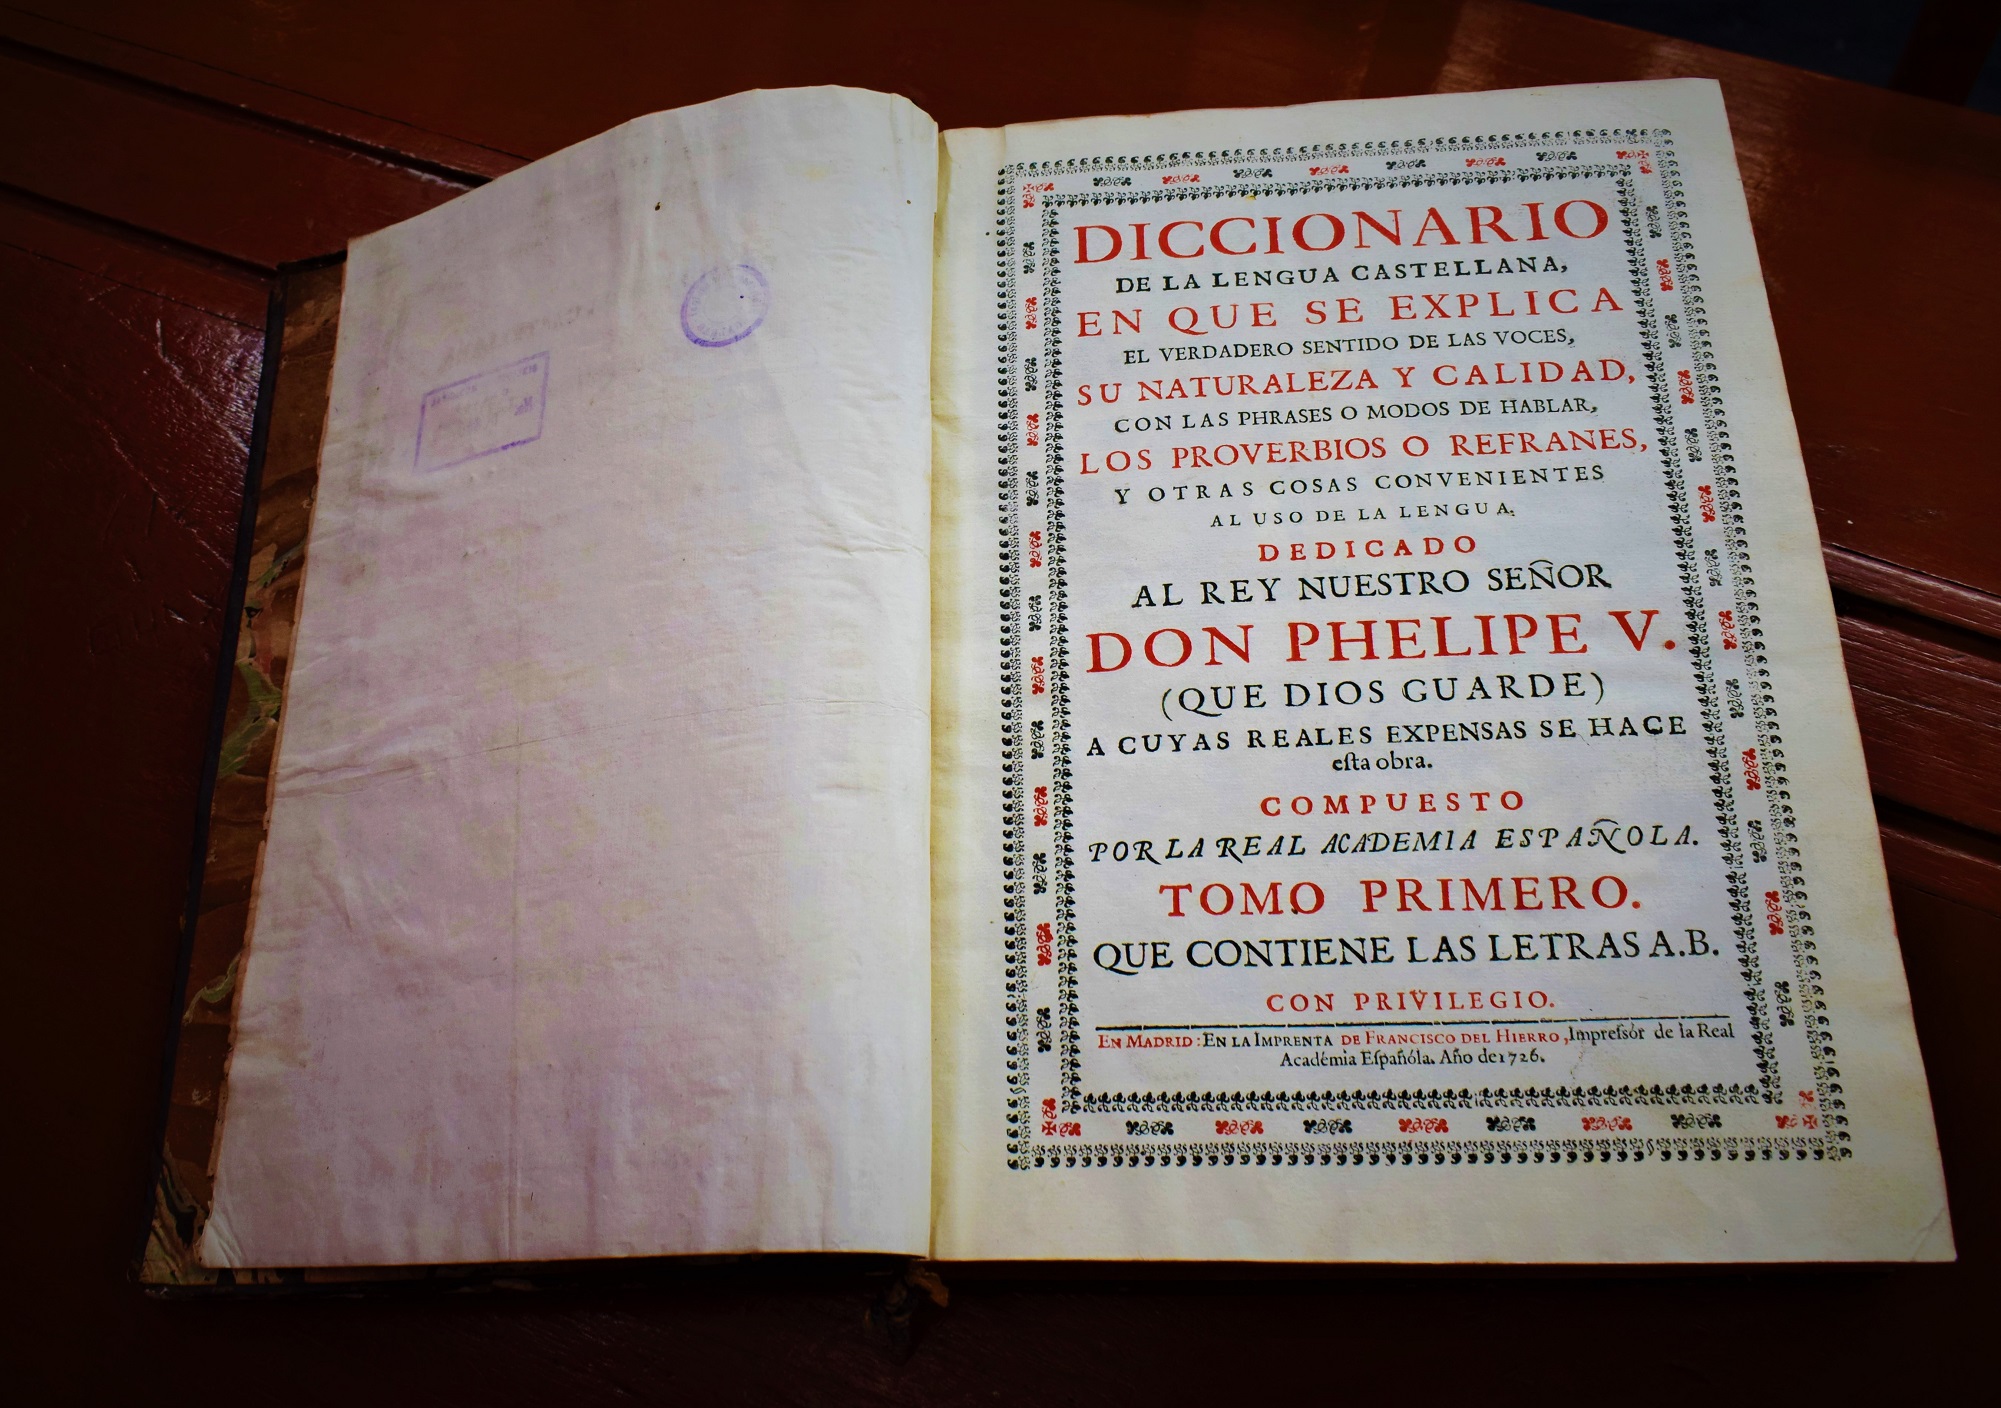 DICCIONARIO
DE LA LENGUA CASTELLANA,
EN QUE SE EXPLICA
EL VERDADERO SENTIDO DE LAS VOCES,
SU NATURALEZA Y CALIDAD,
CON LAS PHRASES O MODOS DE HABLAR,
LOS PROVERBIOS O REFRANES,
Y OTRAS COSAS CONVENIENTES
AL USO DE LA LENGUA.
DEDICADO
AL REY NUESTRO SEÑOR
DON PHELIPE V.
(QUE DIOS GUARDE)
A CUYAS REALES EXPENSAS SE HACE
eſta obra.
COMPUESTO
POR LA REAL ACADEMIA ESPAÑOLA.
TOMO PRIMERO.
QUE CONTIENE LAS LETRAS A.B.
CON PRIVILEGIO.
EN MADRID: EN LA IMPRENTA DE FRANCISCO DEL HIERRO, Impreſsór de la Real
Académia Eſpañóla. Año de 1726.